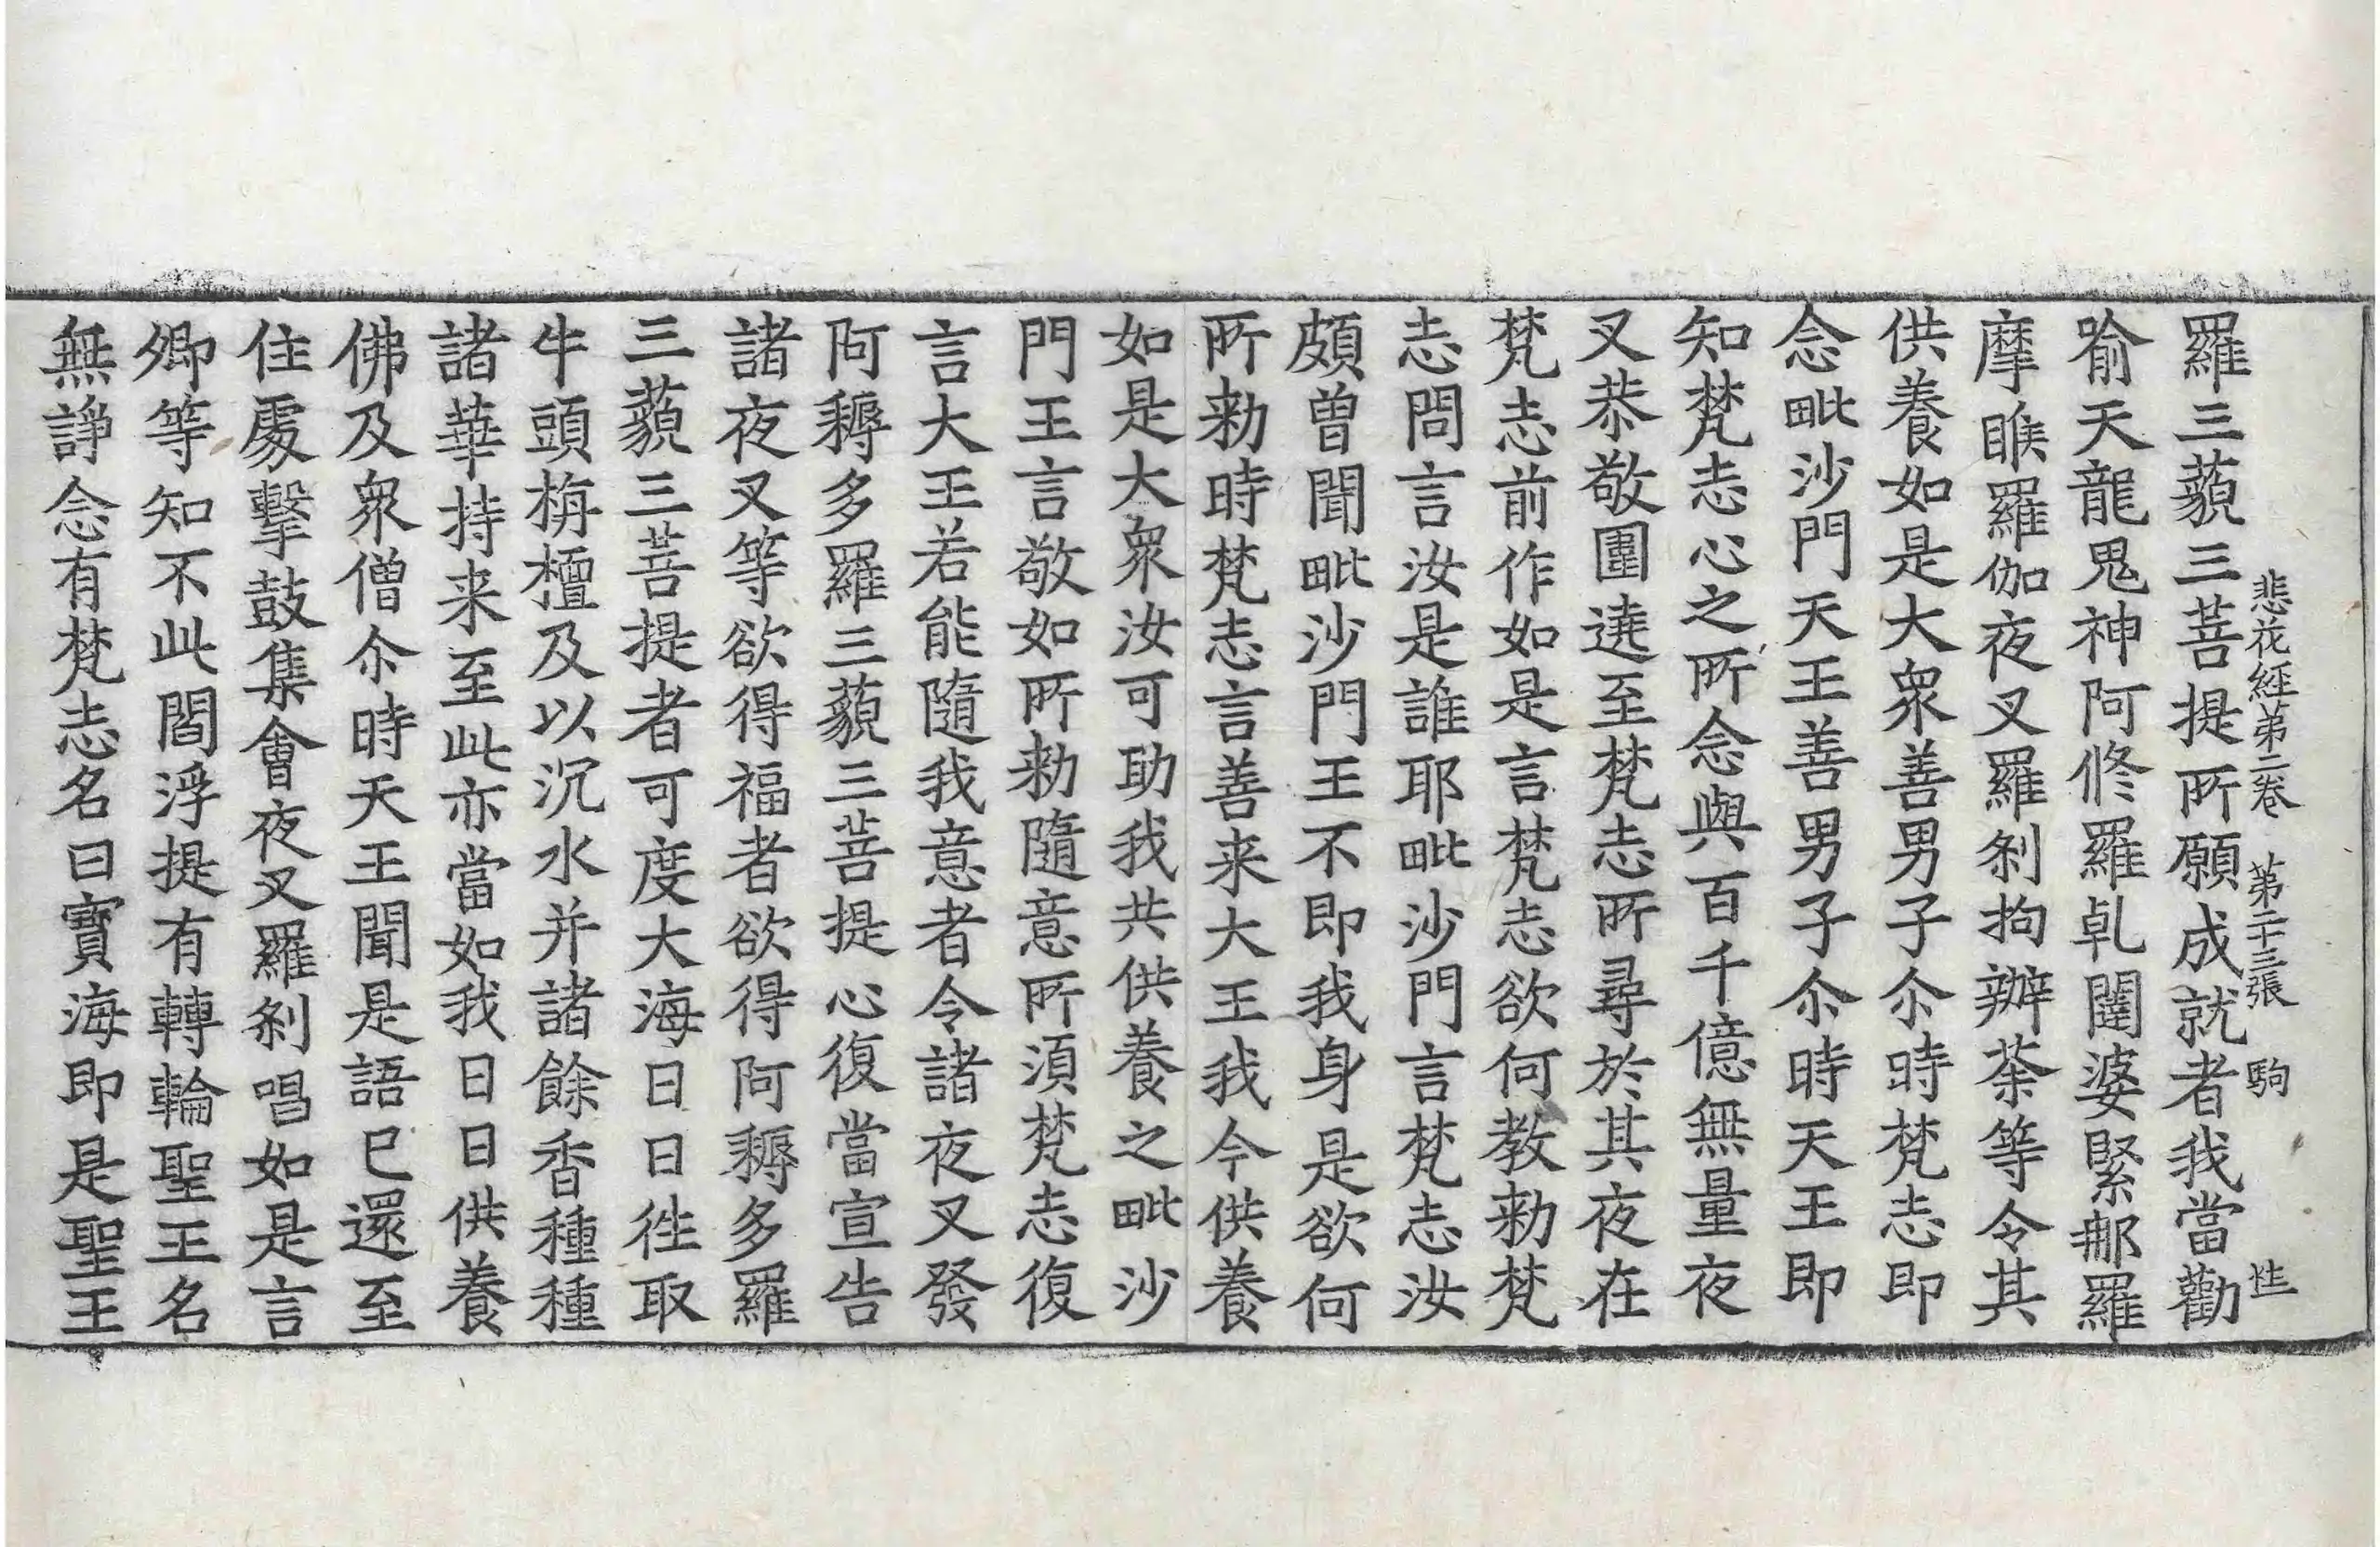 悲花經第二卷 第二十三張 駒 性
羅三藐三菩提所願成就者我當勸
喻天龍鬼神阿修羅乹闥婆緊那羅
摩睺羅伽夜叉羅剎拘辦荼等令其
供養如是大衆善男子尒時梵志即
念毗沙門天王善男子尒時天王即
知梵志心之所念與百千億無量夜
叉恭敬圍遶至梵志所尋於其夜在
梵志前作如是言梵志欲何教勑梵
志問言汝是誰耶毗沙門言梵志汝
頗曾聞毗沙門王不即我身是欲何
所勑時梵志言善来大王我今供養
如是大衆汝可助我共供養之毗沙
門王言敬如所勑隨意所湏梵志復
言大王若能隨我意者令諸夜叉發
阿耨多羅三藐三菩提心復當宣告
諸夜叉等欲得福者欲得阿耨多羅
三藐三菩提者可度大海日日徃取
牛頭栴檀及以沉水并諸餘香種種
諸華持来至此亦當如我日日供養
佛及衆僧尒時天王聞是語已還至
住處擊鼓集會夜叉羅剎唱如是言
卿等知不此閻浮提有轉輪聖王名
無諍念有梵志名曰寶海即是聖王